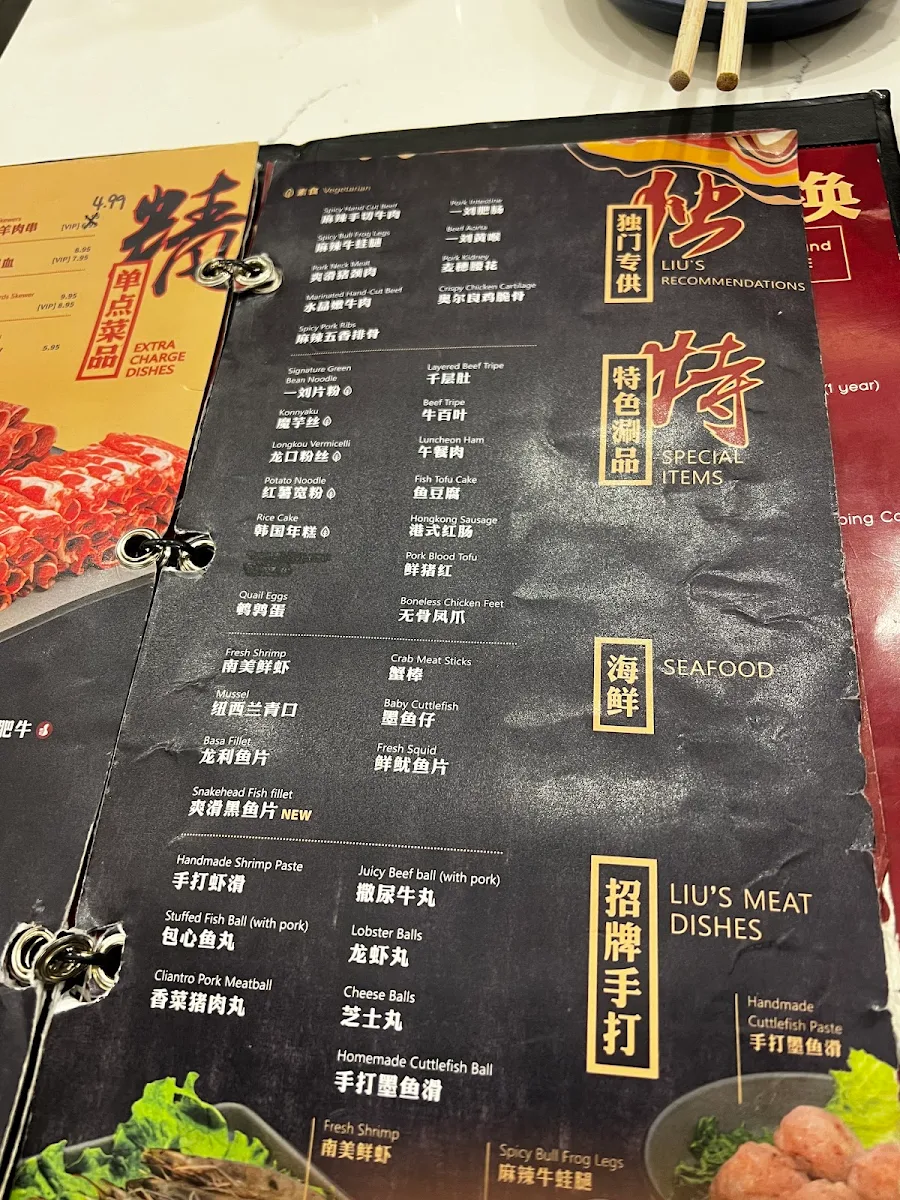 4.99
Skewers
羊肉串
[VIP]
6.95
血
[VIP] 7.95
rds Skewer
9.95
[VIP] 8.95
5.95
精
单点菜品
EXTRA
CHARGE
DISHES
肥牛
素食 Vegetarian
Spicy Hand Cut Beef
麻辣手切牛肉
Spicy Bull Frog Legs
麻辣牛蛙腿
Pork Neck Meat
爽滑猪颈肉
Marinated Hand-Cut Beef
水晶嫩牛肉
Spicy Pork Ribs
麻辣五香排骨
Pork Intestine
一刘肥肠
Beef Aorta
一刘黄喉
Pork Kidney
麦穗腰花
Crispy Chicken Cartilage
奥尔良鸡脆骨
独
独门专供
LIU'S
RECOMMENDATIONS
Signature Green
Bean Noodle
一刘片粉
Konnyaku
魔芋丝
Longkou Vermicelli
龙口粉丝
Potato Noodle
红薯宽粉
Rice Cake
韩国年糕
Quail Eggs
鹌鹑蛋
Layered Beef Tripe
千层肚
Beef Tripe
牛百叶
Luncheon Ham
午餐肉
Fish Tofu Cake
鱼豆腐
Hongkong Sausage
港式红肠
Pork Blood Tofu
鲜猪红
Boneless Chicken Feet
无骨凤爪
特
特色涮品
SPECIAL
ITEMS
Fresh Shrimp
南美鲜虾
Mussel
纽西兰青口
Basa Fillet
龙利鱼片
Snakehead Fish fillet
爽滑黑鱼片 NEW
Crab Meat Sticks
蟹棒
Baby Cuttlefish
墨鱼仔
Fresh Squid
鲜鱿鱼片
海鲜
SEAFOOD
Handmade Shrimp Paste
手打虾滑
Stuffed Fish Ball (with pork)
包心鱼丸
Cliantro Pork Meatball
香菜猪肉丸
Juicy Beef ball (with pork)
撒尿牛丸
Lobster Balls
龙虾丸
Cheese Balls
芝士丸
Homemade Cuttlefish Ball
手打墨鱼滑
招牌手打
LIU'S MEAT
DISHES
Handmade
Cuttlefish Paste
手打墨鱼滑
Fresh Shrimp
南美鲜虾
Spicy Bull Frog Legs
麻辣牛蛙腿
换
and
(1 year)
ping Co